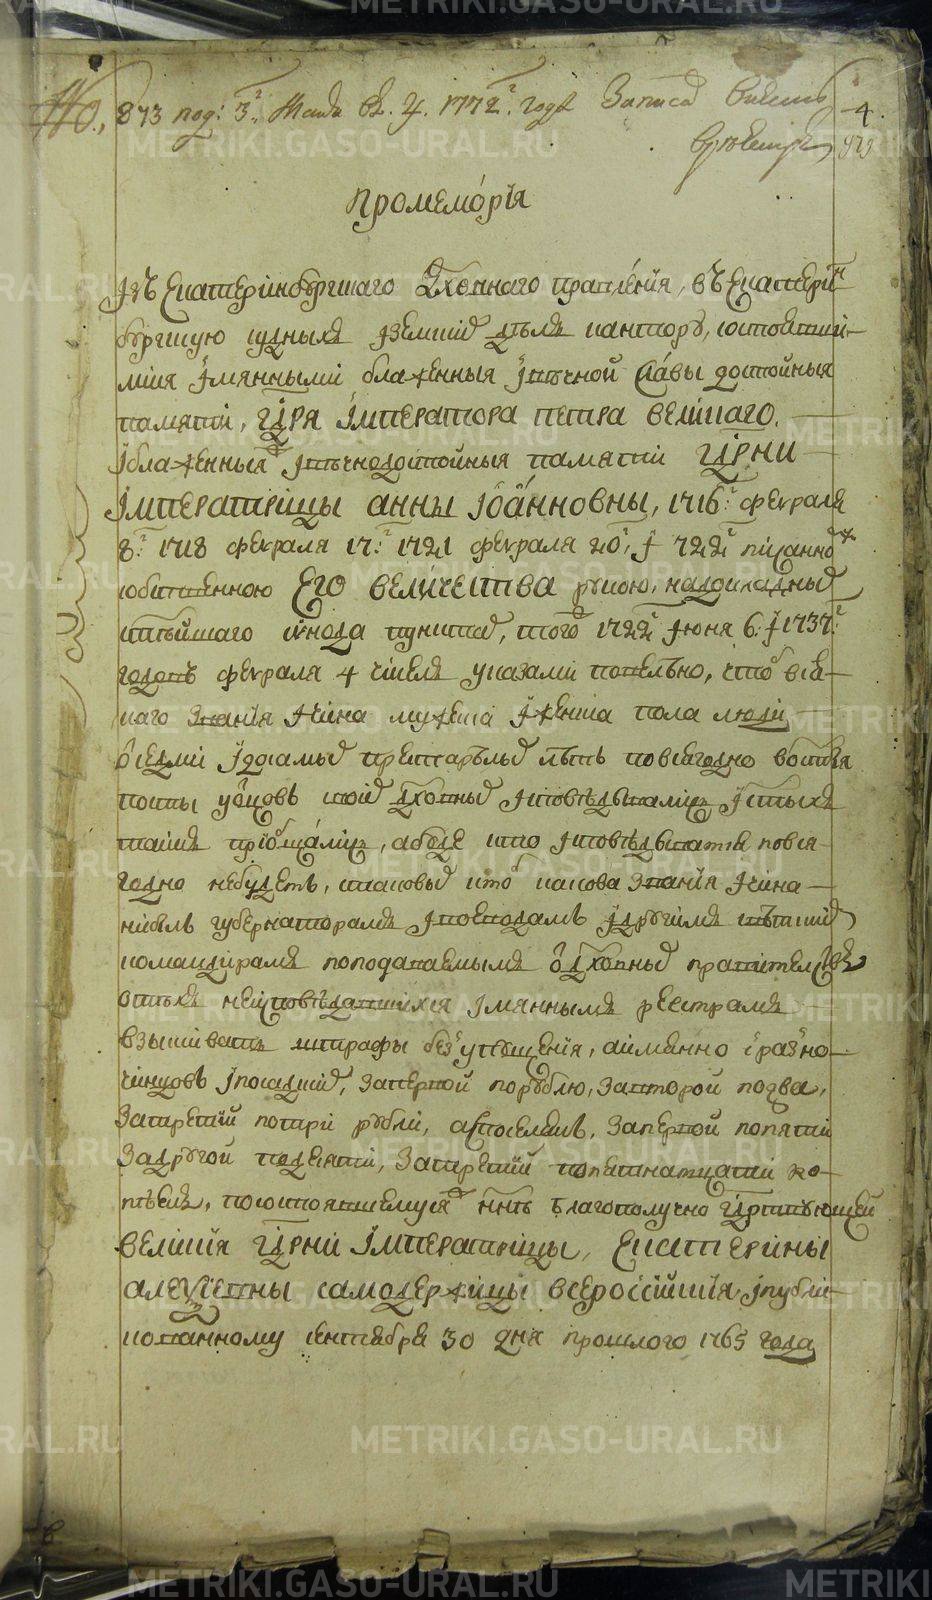 № 873 под: 3. Маия въ 4. 1772 году Записав
4
промемо́рїя
Iзъ Екатерiнбургскаго духовнаго правле́нiя, въ Екатерiн
бургскую судныхъ Iземскихъ делъ кантору, состоявши
мися Iмянными блаженныя Iвѣчной славы достойныя
памяти, гдря Iмператора петра велiкаго,
Iблаженныя Iвѣчнодостойныя памяти гдрни
Iмператрiцы анны Iоа́нновны, 1716: февраля
8: 1718 февраля 17: 1721 февраля 20, I 722 пiсанно
собственною Его велiчества рукою, надокладных
святѣйшаго сунода пунктах, того 1722 Iюня 6: I 1737:
годовъ февраля 4 чiселъ указами повелѣно, чтоб вся
каго званiя Iчiна мужеска Iженска пола люди
ѿседми Iдосамых престарѣлых лѣтъ повсягодно во всѣхъ
попы уѿцовъ своих духовных Iсповѣдывались Iстыхъ
таинъ прiобща́лись, абуде кто Iсповѣдыватся повся
годно небудетъ, таковых ктоб какова званiя Iчiна
нибылъ губернаторамъ Iвоеводамъ Iдругимъ свѣтским
командiрамъ поподаваемымъ ѿдховных правителствъ
отѣхъ неисповѣдавшихся Iмяннымъ реестрамъ
взыскивать штрафы без упущенiя, аименно сразно
чiнцовъ Iпосадских, заперьвой порублю, завторой подва,
Затретiй потри рубли, аспоселянъ, заперьвой попяти
Задругой подесяти, Затретiй попятнатцати ко
пѣекъ, посостоявшемуся нн҃ѣ благополучно гдрствующей
велiкiя гдрни Iмператрiцы, Екатерiны
алеѯiевны самодержiцы всероссiйскiя, Iпублi
кованному сентября 30 дня прошлого 1765 года
METRIKI.GASO-URAL.RU